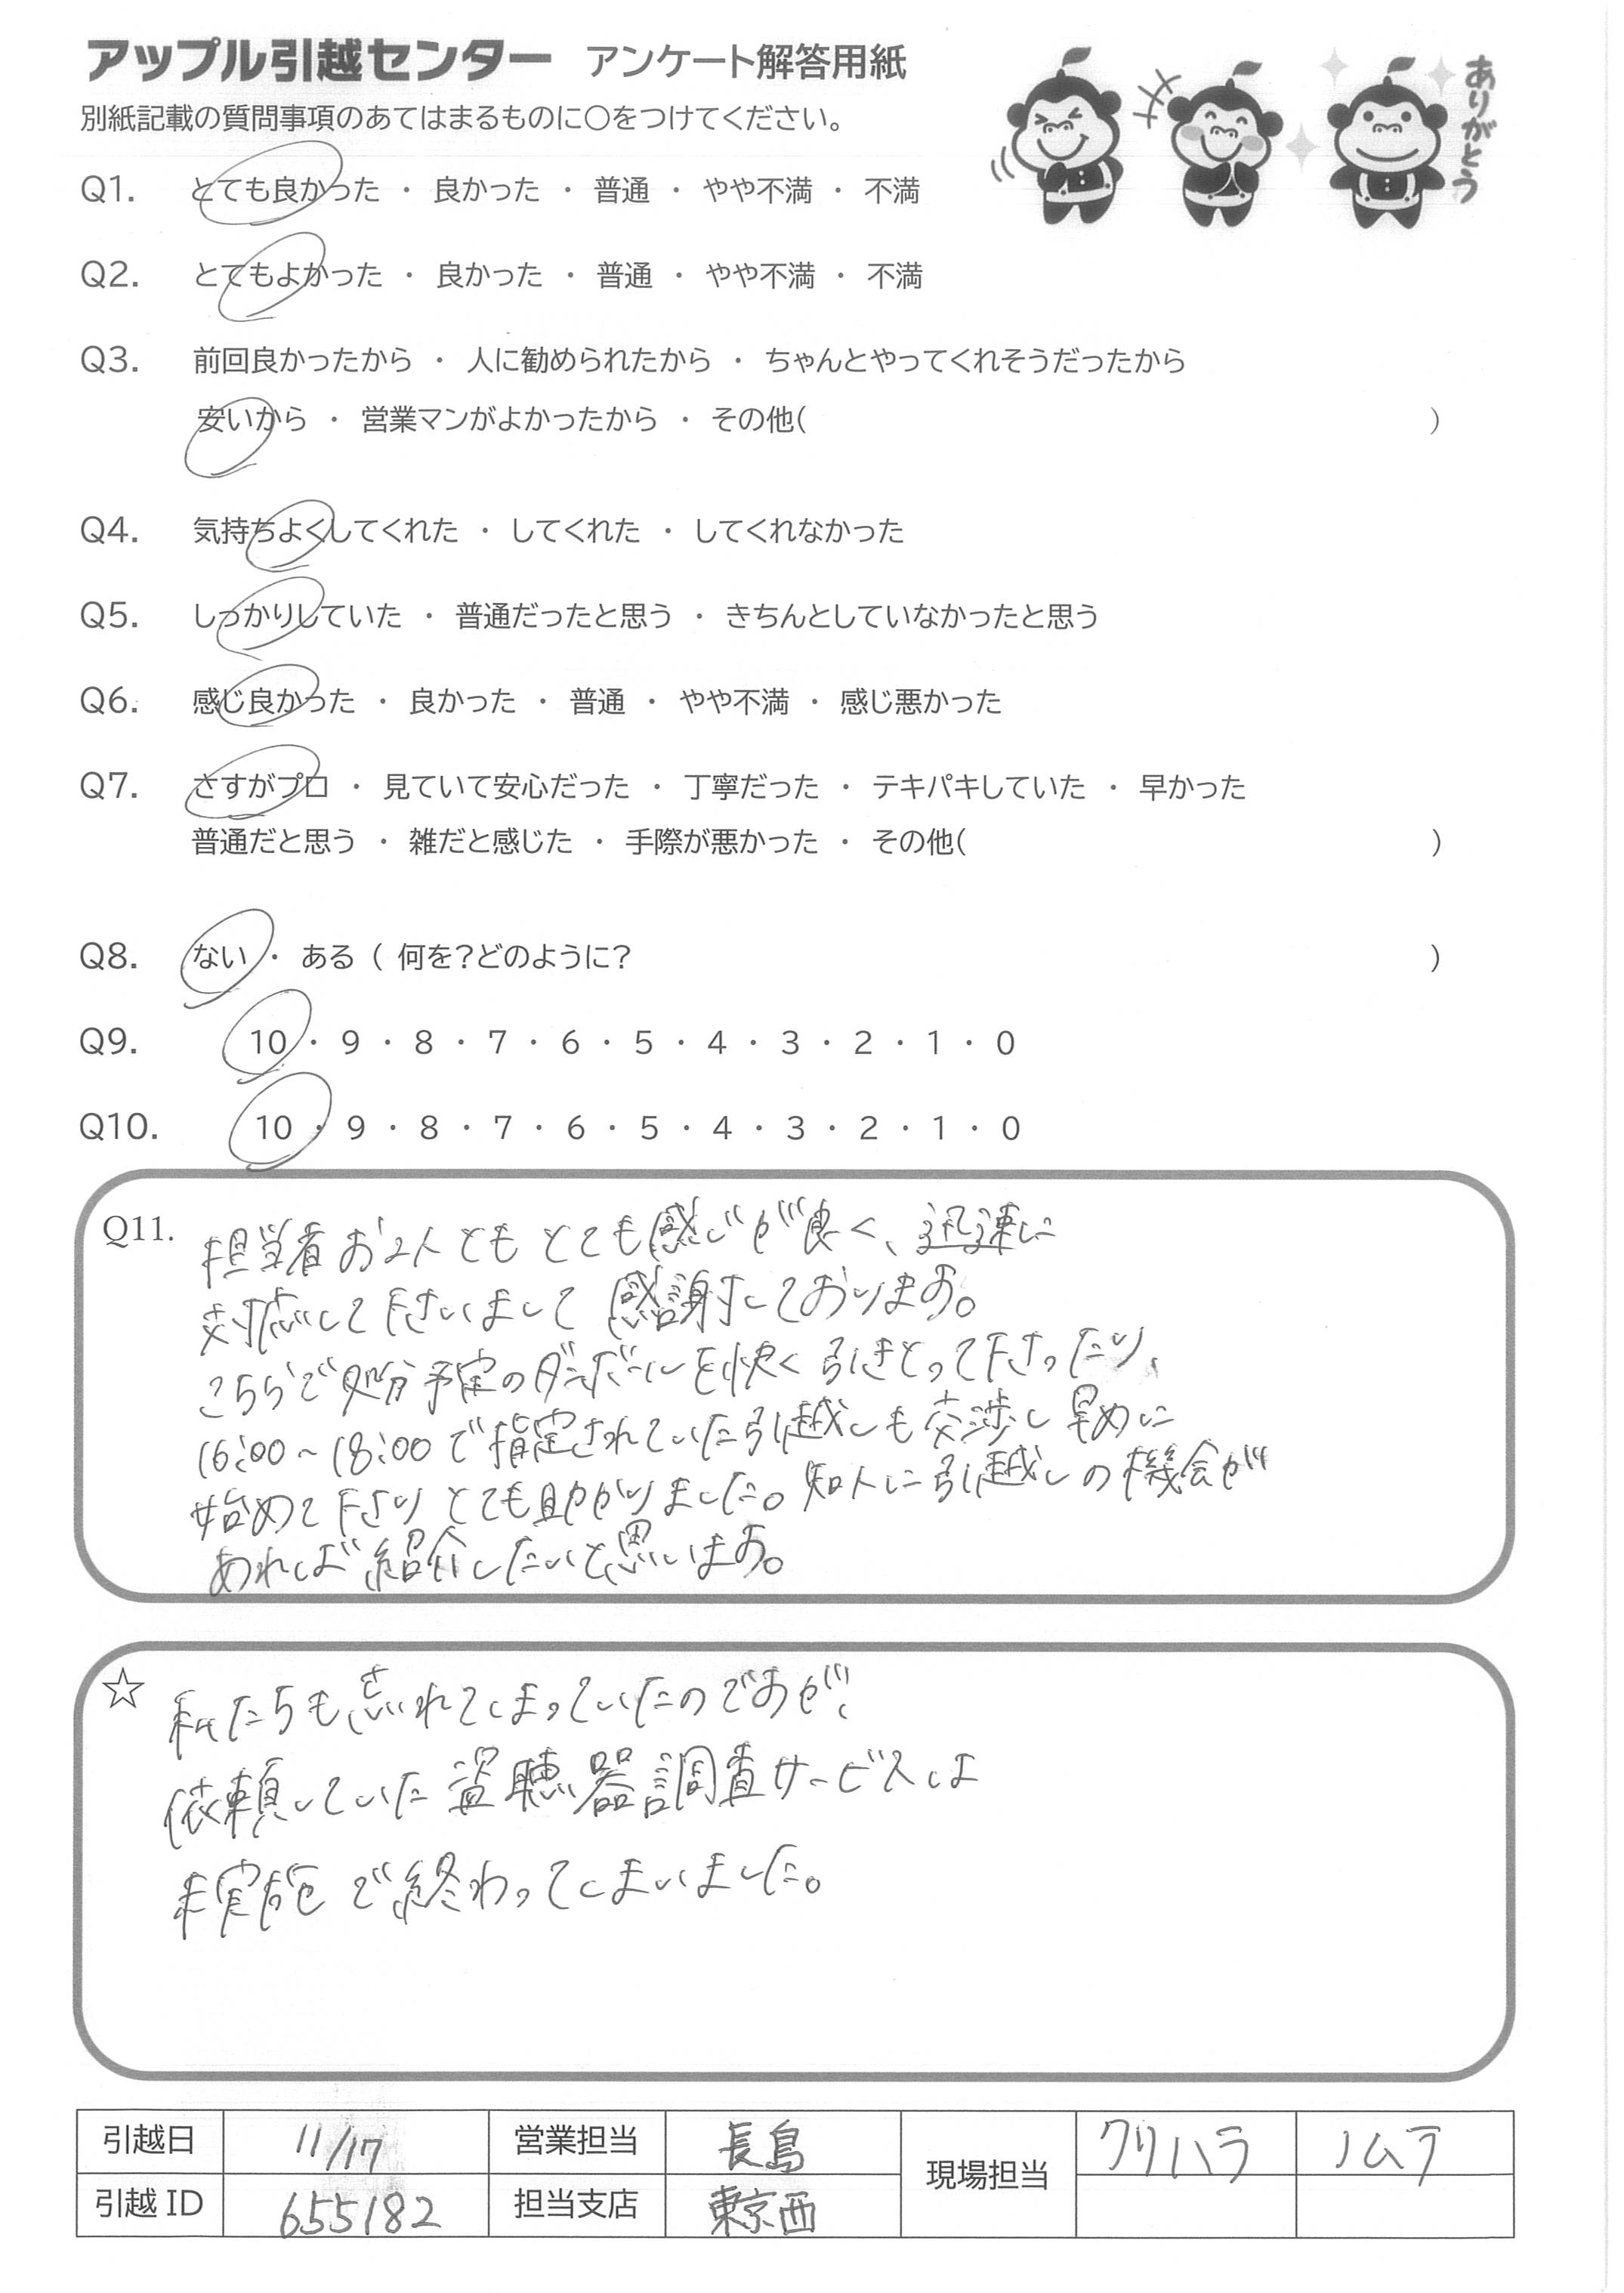 アップル引越センター アンケート解答用紙
別紙記載の質問事項のあてはまるものに○をつけてください。
ありがとう
Q1. とても良かった ・ 良かった ・ 普通 ・ やや不満 ・ 不満
Q2. とてもよかった ・ 良かった ・ 普通 ・ やや不満 ・ 不満
Q3. 前回良かったから ・ 人に勧められたから ・ ちゃんとやってくれそうだったから
安いから ・ 営業マンがよかったから ・ その他( )
Q4. 気持ちよくしてくれた ・ してくれた ・ してくれなかった
Q5. しっかりしていた ・ 普通だったと思う ・ きちんとしていなかったと思う
Q6. 感じ良かった ・ 良かった ・ 普通 ・ やや不満 ・ 感じ悪かった
Q7. さすがプロ ・ 見ていて安心だった ・ 丁寧だった ・ テキパキしていた ・ 早かった
普通だと思う ・ 雑だと感じた ・ 手際が悪かった ・ その他( )
Q8. ない ・ ある ( 何を?どのように? )
Q9. 10 ・ 9 ・ 8 ・ 7 ・ 6 ・ 5 ・ 4 ・ 3 ・ 2 ・ 1 ・ 0
Q10. 10 ・ 9 ・ 8 ・ 7 ・ 6 ・ 5 ・ 4 ・ 3 ・ 2 ・ 1 ・ 0
Q11. 担当者お2人ともとても感じが良く、迅速に
対応して下さいまして感謝しております。
こちらで処分予定のダンボールを快く引きとって下さったり、
16:00~18:00で指定されていた引越しも交渉し早めに
始めて下さりとても助かりました。知人に引越しの機会が
あれば紹介したいと思います。
☆ 私たちも忘れてしまっていたのですが、
依頼していた盗聴器調査サービスは
未実施で終わってしまいました。
引越日 11/17 営業担当 長島 現場担当 クリハラ ノムラ
引越ID 655182 担当支店 東京西